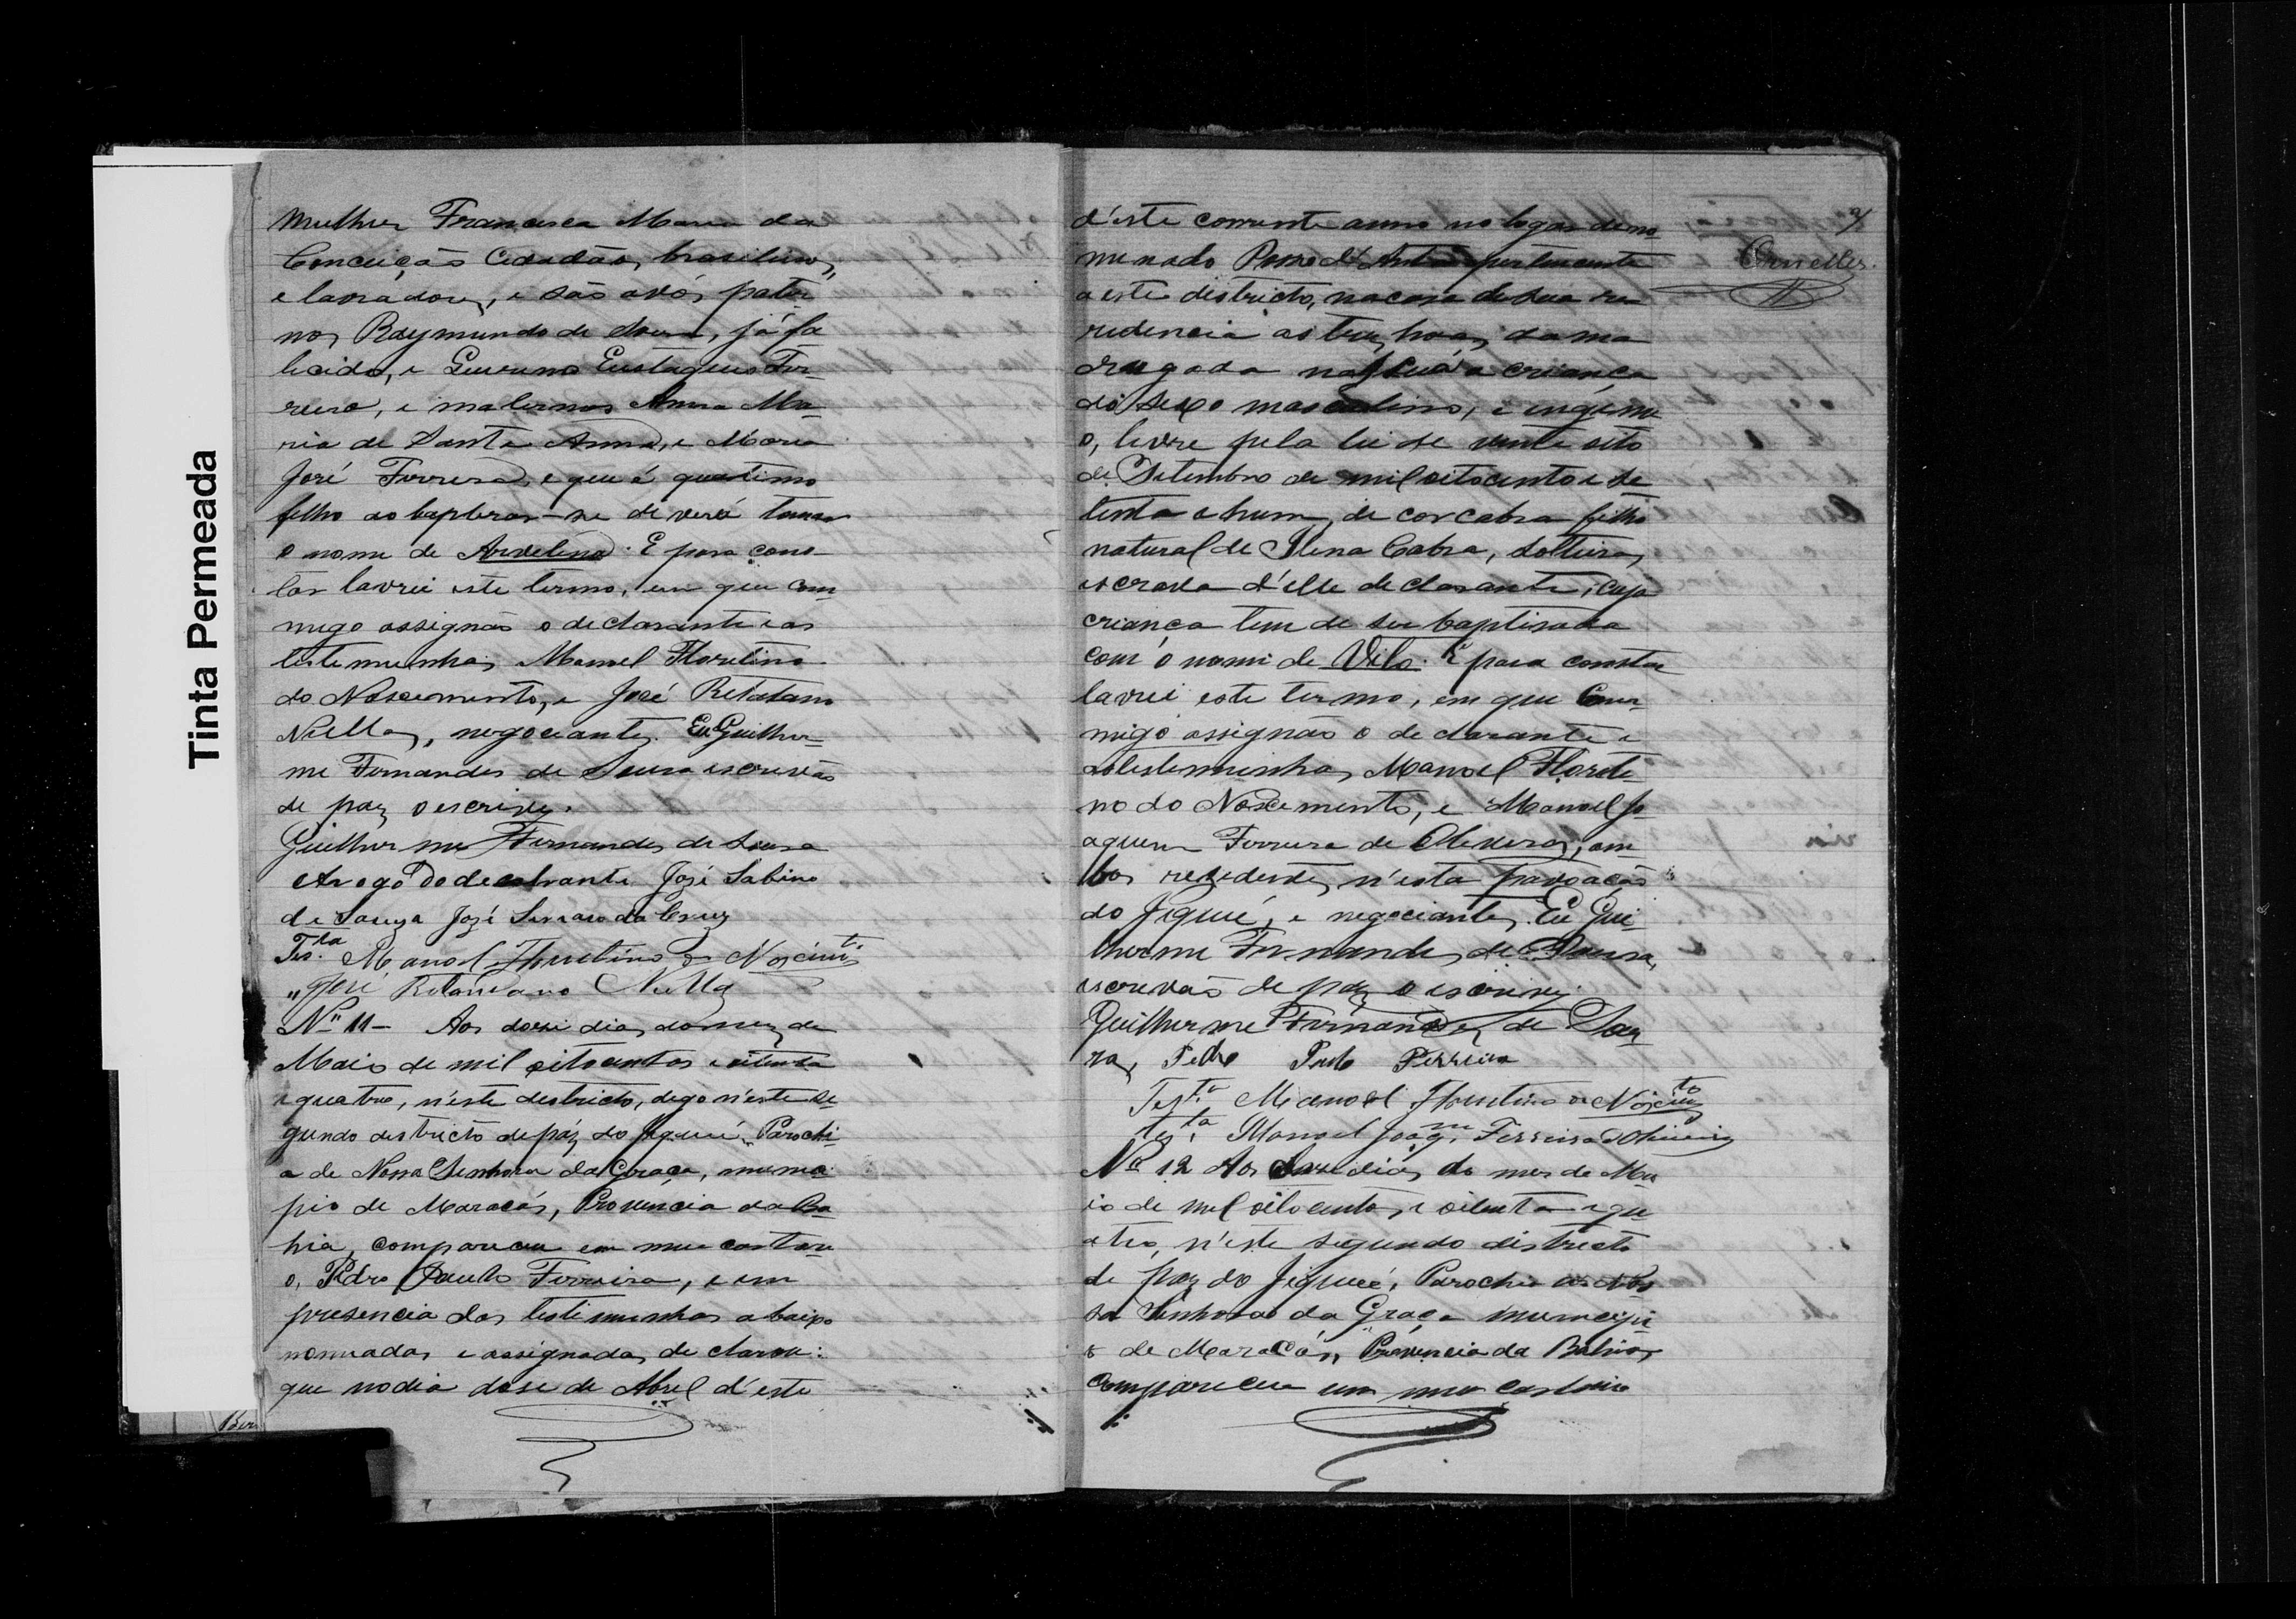 Tinta Permeada
Mulher Francisca Maria da
Conceição Cidadãos, brasileiros,
e lavradores, e são avós pater
nos Raymundo de Sousa, já fa
lecido, e Eustaquio Fer
reira, e maternos Anna Ma
ria de Santa Anna, e Maria
José Ferreira, e que é quartimo
filho ao baptisar-se deverá tomar
o nome de Arvelina. E para cons
tar lavrei este termo, em que com
migo assignão o declarante e as
testemunhas Manoel Florentino
do Nascimento, e José
negociantes. Eu Guilher
me Fernandes de Sousa escrivão
de paz o escrivy.
Guilherme Fernandes de Sousa
Arogo do decalrante José Sabino
de Souza José da Cruz
Tes.ta Manoel Florentino do Nascimto
" José
Nº 11 - Aos dose dias do mez de
Maio de mil oitocentos e oitenta
e quatro, n'este destricto, digo n'este se
gundo destricto de páz do Jiquié, Parochi
a de Nossa Senhora da Graça, munici
pio de Maracás, Provincia da Ba
hia, compareceu em meu cartori
o, Pedro Paulo Ferreira, e em
presencia das testimunhas abaixo
nomiadas e assignadas, declarou:
que no dia dose de Abril d'este
d'este corrente anno no logar deno
minado pertencente
a este districto, na casa de sua re
sidencia as tres horas da ma
drugada nasceu a criança
do sexo masculino, e ingenu
o, livre pela lei de vinte oito
de Setembro de mil oitocentos e se
tenta e hum, de cor cabra filho
natural de Elena Cabra, solteira,
escrava d'elle declarante; cuja
criança tem de ser baptisada
com o nome de Vito. E para constar
lavrei este termo, em que Com
migo assignão o declarante e
as testemunhas, Manoel Florenti
no do Nascimento, e Manoel Jo
aquem Ferreira de Oliveira, am
bos residentes n'esta povoação
do Jiquié, e negociantes. Eu Gui
lherme Fernandes de Sousa,
escrivão de paz o escrivy.
Guilherme Fernandes de Sou
za, Pedro Paulo Ferreira
Tes.ta Manoel Florentino do Nascimto
Tes.ta Manoel Joaqm Ferreira d'Oliveira
Nº 12 Aos dose dias do mes de Ma
io de mil oitocentos e oitenta e qu
atro, n'este segundo districto
de paz do Jiquié, Parochia de Nos
sa Senhora da Graça municipi
o de Maracás, Provincia da Bahia,
Compareceu em meu cartorio